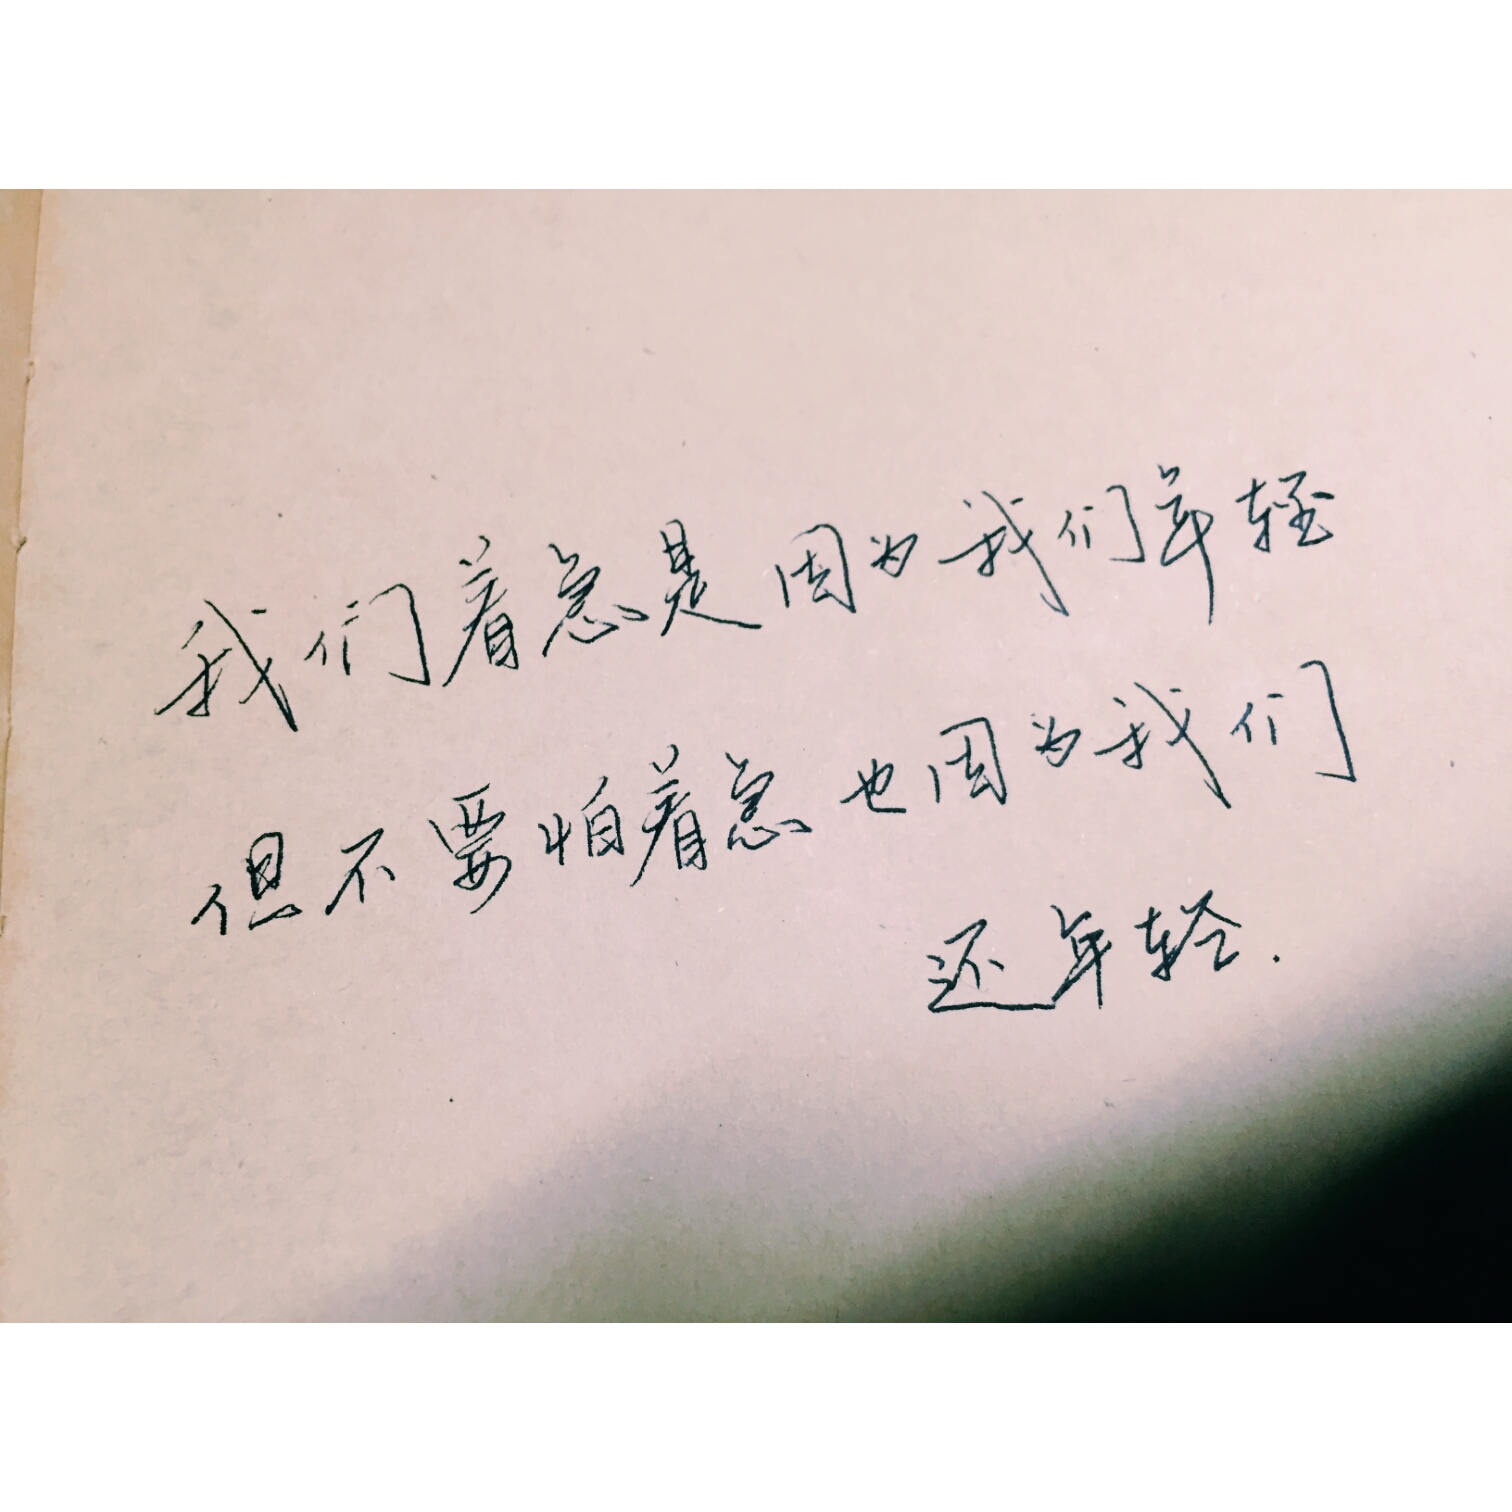 我们着急是因为我们年轻
但不要怕着急也因为我们
还年轻.